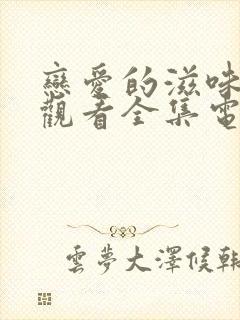 戀愛的滋味
觀看全集電
雲夢大澤候韓